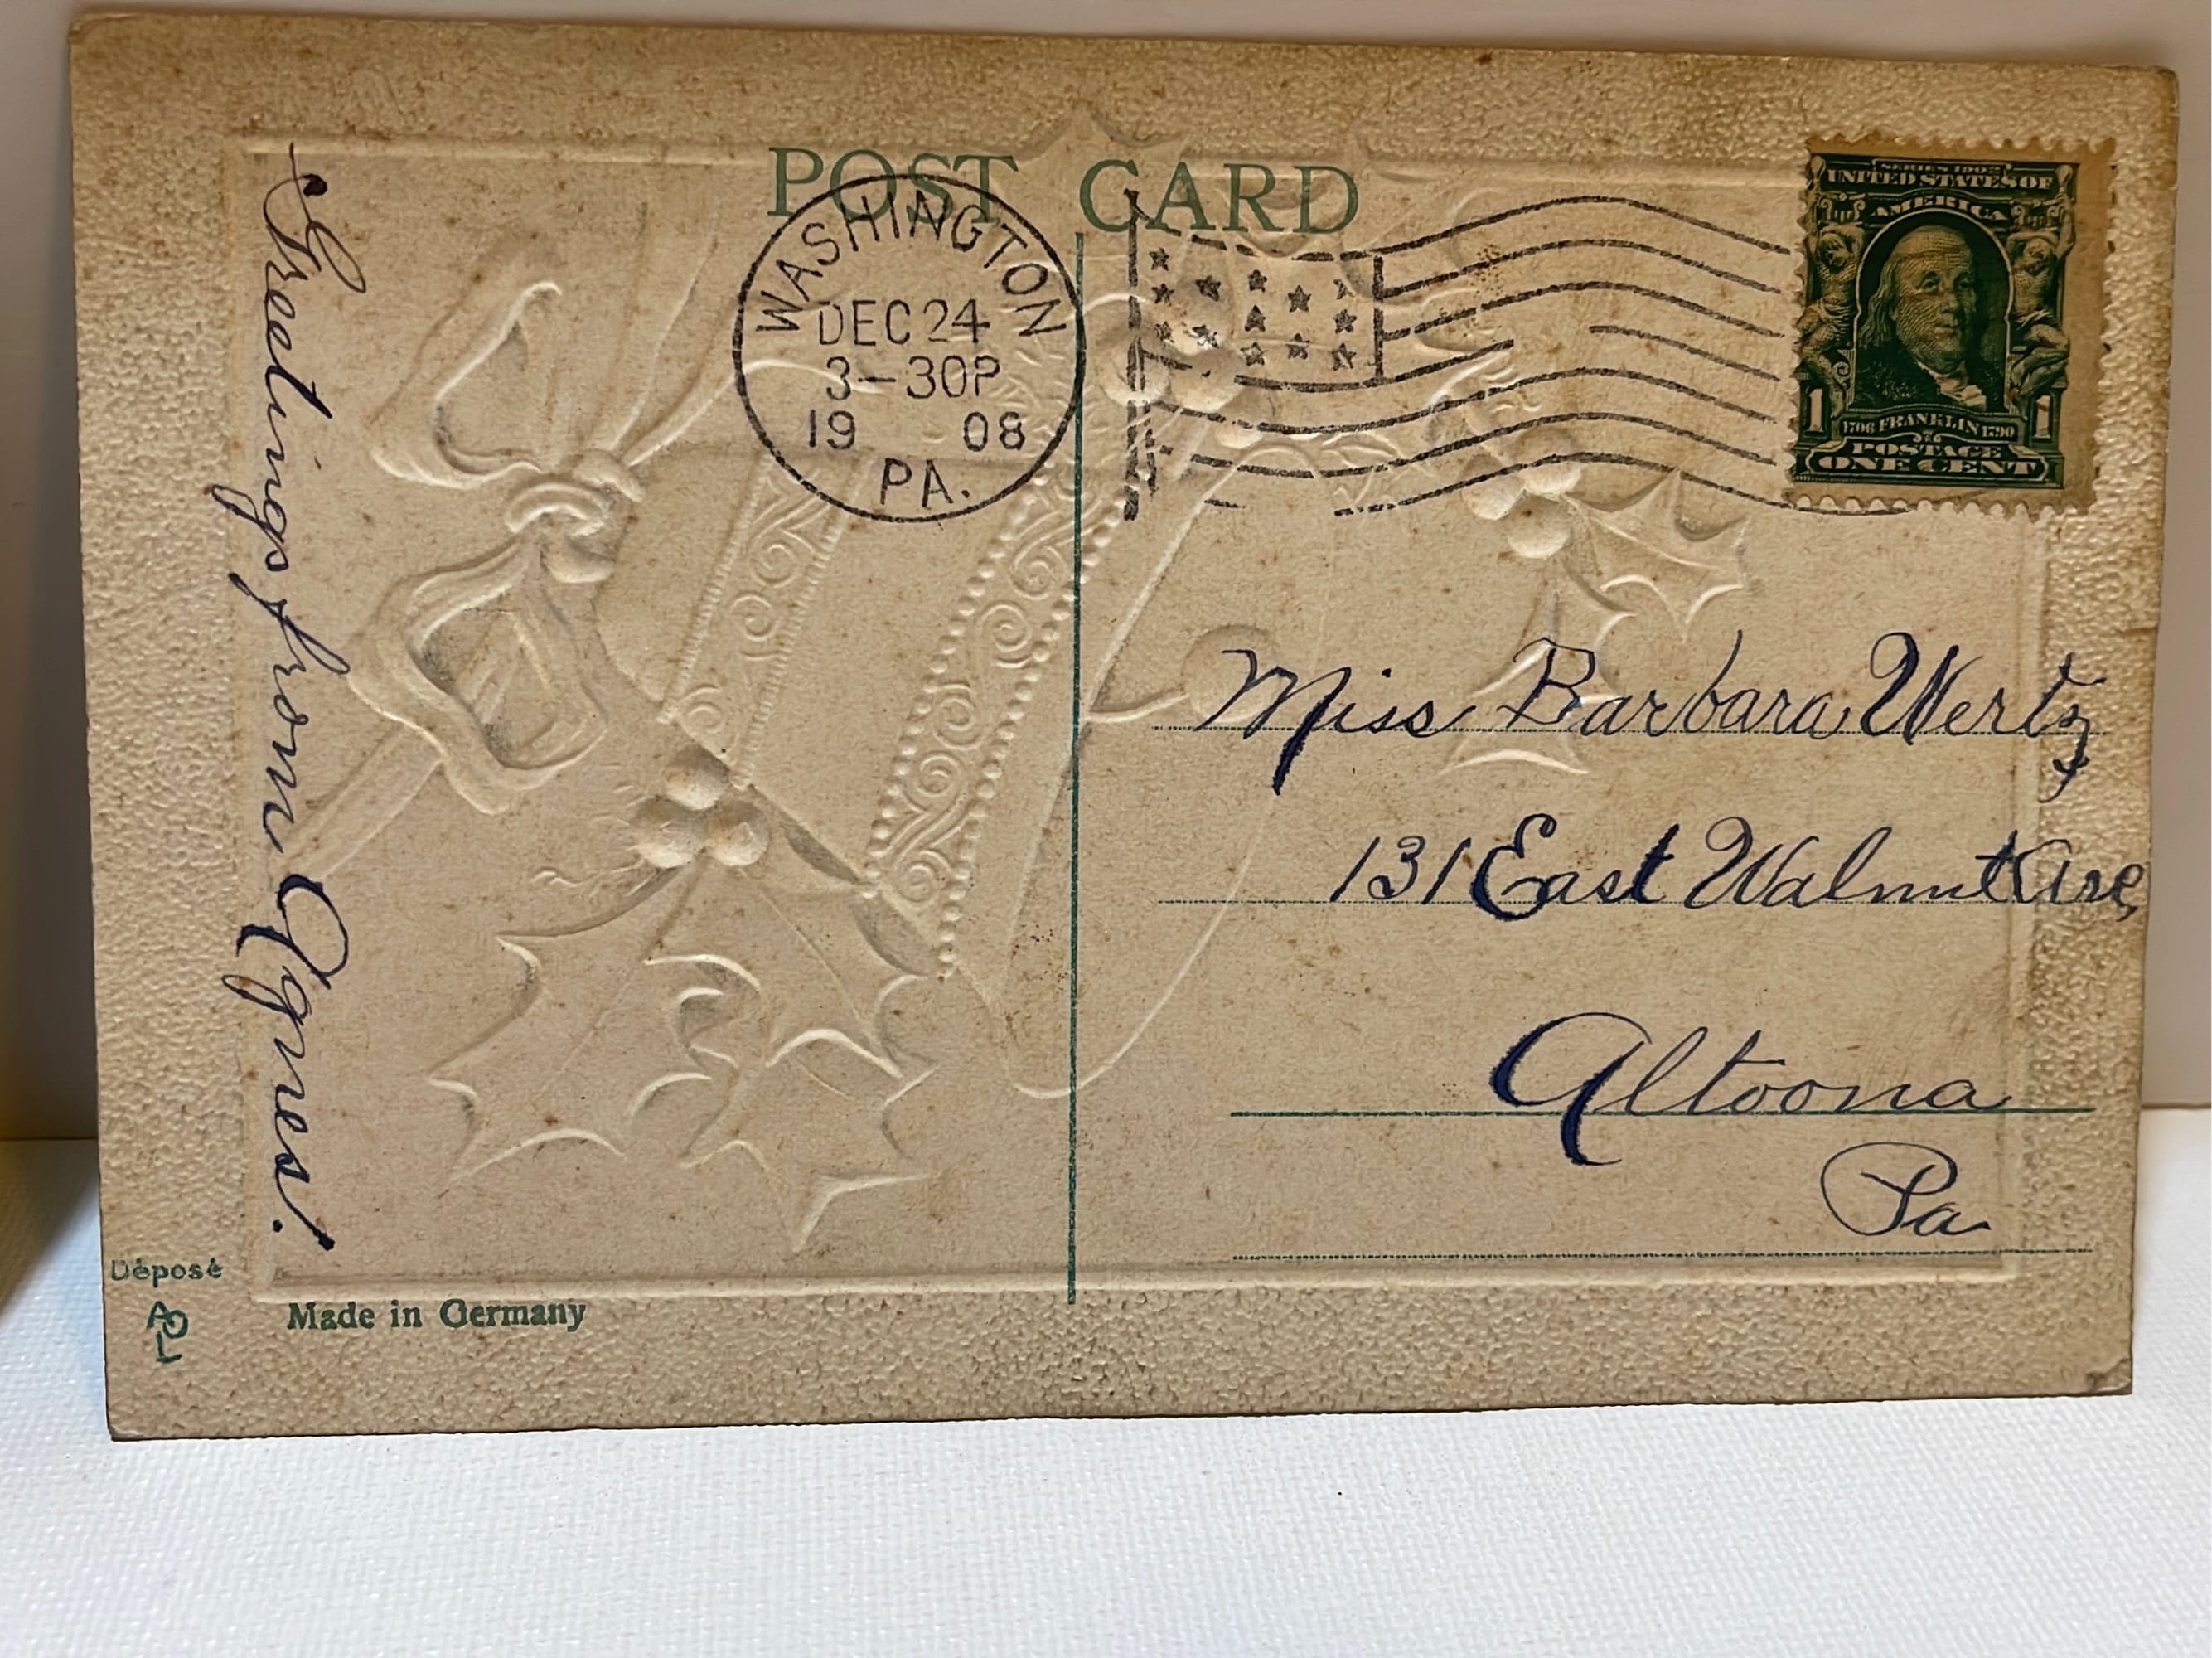 POST CARD
WASHINGTON
DEC 24
3-30P
19 08
PA.
SERIES 1902
UNITED STATES OF
AMERICA
1 1
1706 FRANKLIN 1790
POSTAGE
ONE CENT
Greetings from Agnes!
Miss Barbara Wertz
131 East Walnut Ave
Altoona
Pa
Déposé
Made in Germany